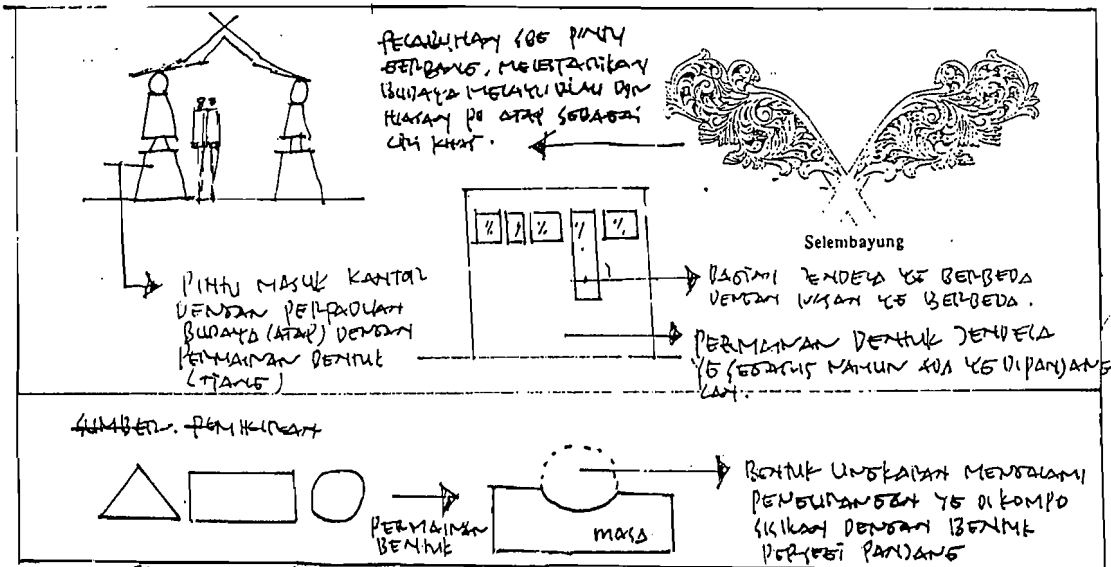 PELABUHAN SBG PINTU
GERBANG, MELESTARIKAN
BUDAYA MELAYU RIAU DGN
HIASAN PD ATAP SEBAGAI
CIRI KHAS.
Selembayung
PINTU MASUK KANTOR
DENGAN PERPADUAN
BUDAYA (ATAP) DENGAN
PERMAINAN BENTUK
(TIANG)
BAGIAN JENDELA YG BERBEDA
DENGAN YG BERBEDA.
PERMAINAN BENTUK JENDELA
YG NAMUN ADA YG DIPANJANG
KAN.
SUMBER PEMIKIRAN
PERMAINAN
BENTUK
MASA
BENTUK UNGKAPAN MENGALAMI
PENGURANGAN YG DI KOMPO
SISIKAN DENGAN BENTUK
PERSEGI PANJANG